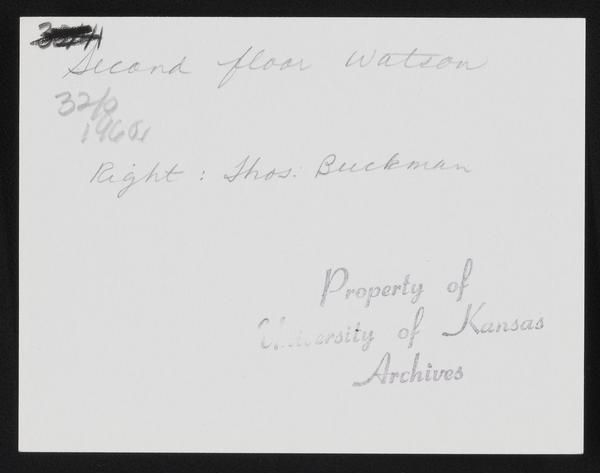 Second floor Watson
32/0
1960s
Right: Thos. Buckman
Property of
University of Kansas
Archives